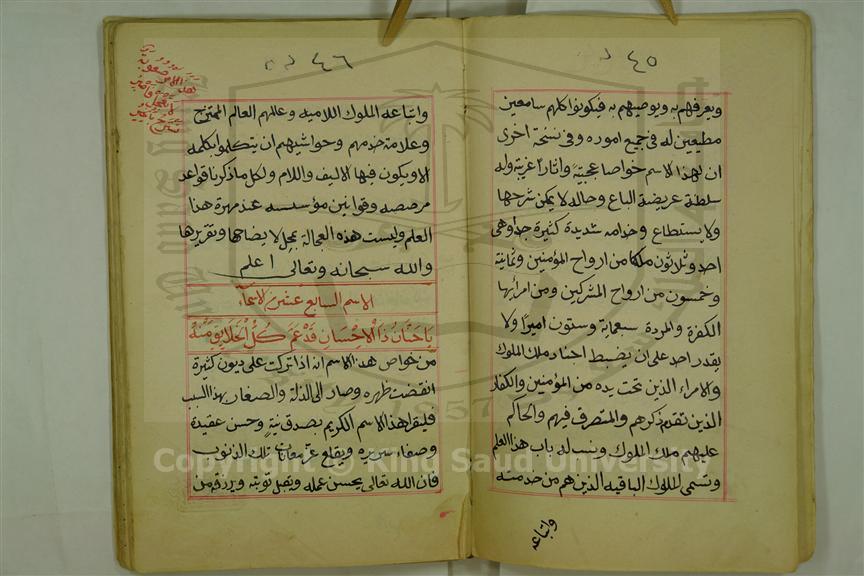 ٤٥
ويعرفهم به ويوصيهم به فيكونوا كلهم سامعين
مطيعين له في جميع اموره وفي نسخة اخرى
ان لهذا الاسم خواصا عجيبة واثارا غريبة وله
سلطنة عريضة الباع وحاله لا يمكن شرحها
ولا يستطاع وخدامه شديدة كثيرة جدا وهي
احد وثلاثون ملكا من ارواح المؤمنين وثمانية
وخمسون من ارواح المشركين ومن امرائها
الكفرة والمردة سبعماية وستون اميرا ولا
يقدر احد على ان يضبط اجناد ملك الملوك
والامراء الذين تحت يده من المؤمنين والكفار
الذين تقدم ذكرهم والمتصرف فيهم والحاكم
عليهم ملك الملوك ونسله باب هذا العلم
وتسمى الملوك الباقيه الذين هم من خدمته
واتباعه
٤٦
واتباعه الملوك اللاميه وعالمهم العالم الممتزج
وعلامة خدمهم وحواشيهم ان يتكلموا بكلمه
الا ويكون فيها الاليف واللام ولكل ما ذكرنا قواعد
مرصصه وقوانين مؤسسه عند مهرة هذا
العلم وليست هذه العجالة بمحل لايضاحها وتقريرها
والله سبحانه وتعالى اعلم
الاسم السابع عشر من الاسماء
يا حنان ذا الاحسان قد عم كل الخلايق منه
من خواص هذا الاسم انه اذا تركت على ديون كثيرة
انقضت ظهره وصار الى الذلة والصغار بهذا السبب
فليقرا هذا الاسم الكريم بصدق نية وحسن عقيدة
وصفاء سريره ويقلع عن تلك الذنوب
فان الله تعالى يحسن عمله ويقبل توبته ويرزقه من
Copyright © King Saud University
1857